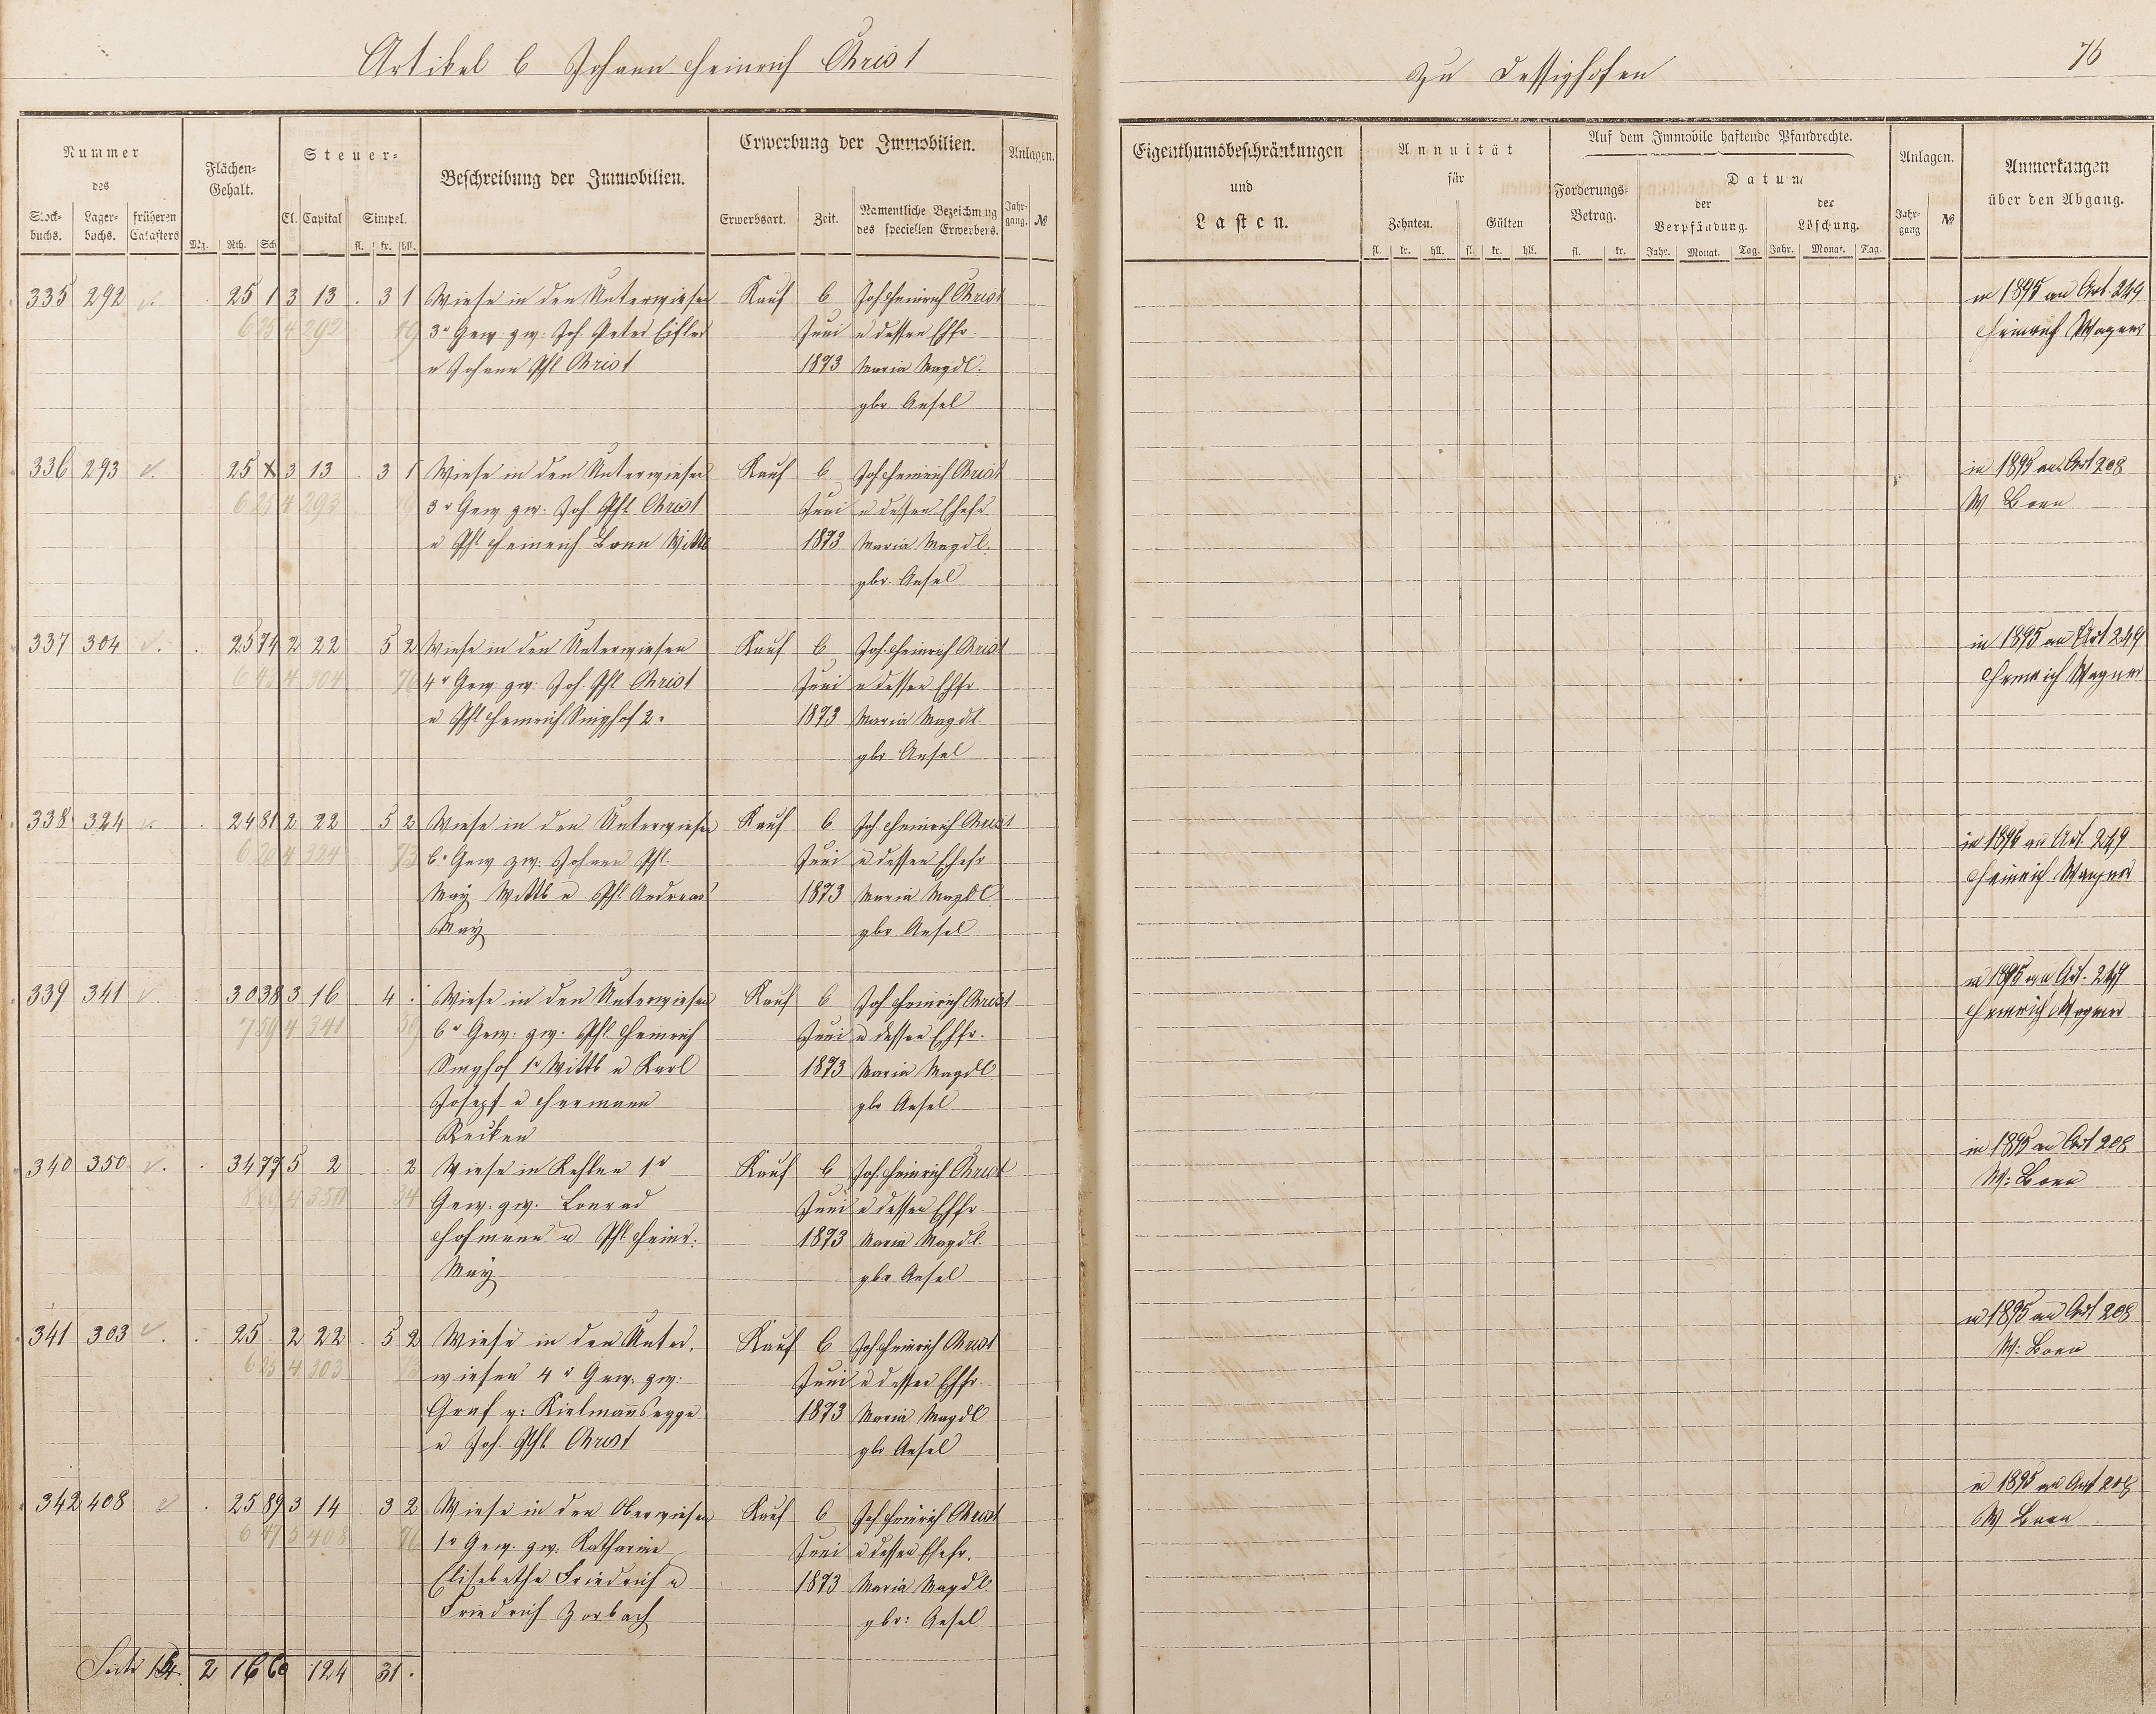 Artikel 6 Johann Heinrich Christ
zu Dessighofen
76
Nummer
des
Stock-
buchs.
Lager-
buchs.
früheren
Catasters
Flächen-
Gehalt.
Mg. Rth. Sch
Steuer-
Cl. Capital Simpel.
fl. kr. hll.
Beschreibung der Immobilien.
Erwerbung der Immobilien.
Erwerbsart. Zeit.
Namentliche Bezeichnung
des speciellen Erwerbers.
Anlagen.
Jahr-
gang.
№
Eigenthumsbeschränkungen
und
Lasten.
Annuität
für
Zehnten. Gülten
fl. kr. hll. fl. kr. hll.
Auf dem Immobile haftende Pfandrechte.
Forderungs-
Betrag.
fl. kr.
Datum
der
Verpfändung.
der
Löschung.
Jahr. Monat. Tag. Jahr. Monat. Tag.
Anlagen.
Jahr-
gang
№
Anmerkungen
über den Abgang.
335 292 25 1 3 13 . 3 1 Wiese in den Unterwiesen Kauf 6 Joh Heinrich Christ in 1895 an Art. 249
6 25 4 292 3r Gew. zw: Joh. Peter Juni u dessen Ehfr. Heinrich Wagner
u Johann Phl Christ 1873 Maria Magdl.
gbr. Ansel
336 293 25 3 13 . 3 1 Wiese in den Unterwiesen Kauf 6 Joh Heinrich Christ in 1895 an Art 208
6 25 4 293 3r Gew zw: Joh. Phl Christ Juni u dessen Ehefr W Born
u Phl Heinrich Born Wittb 1873 Maria Magdl.
gbr. Ansel
337 304 25 74 2 22 5 2 Wiese in den Unterwiesen Kauf 6 Joh. Heinrich Christ in 1895 an Art 249
6 43 4 304 76 4r Gew: zw: Joh. Phl Christ Juni u dessen Ehfr Heinrich Wagner
u Phl Heinrich Singhof 2r 1873 Maria Magdl.
gbr Ansel
338 324 24 81 2 22 5 2 Wiese in den Unterwiesen Kauf 6 Joh. Heinrich Christ in 1896 an Art. 249
6 20 4 324 73 6r Gew zw: Johann Phl. Juni u dessen Ehefr Heinrich Wagner
May Wittb u Phl Andreas 1873 Maria Magdl
May gbr Ansel
339 341 30 38 3 16 4 . Wiese in den Unterwiesen Kauf 6 Joh Heinrich Christ in 1895 an Art. 249
7 59 4 341 6r Gew: zw: Phl. Heinrich Juni u dessen Ehfr. Heinrich Wagner
Singhof 1r Wittb u Karl 1873 Maria Magdl
Joseph u Hermann gbr Ansel
Recken
340 350 34 77 5 2 . 2 Wiese in Kehlen 1r Kauf 6 Joh. Heinrich Christ in 1895 an Art 208
8 69 4 350 34 Gew. zw. Conrad Juni u dessen Ehfr. W: Born
Hofmann u Phl Heinr: 1873 Maria Magdl.
May gbr Ansel
341 303 25 . 2 22 . 5 2 Wiese in den Unter- Kauf 6 Joh Heinrich Christ in 1895 an Art 208
6 25 4 303 wiesen 4r Gew: zw: Juni u dessen Ehfr. W: Born
Graf v: Kielmannsegge 1873 Maria Magdl
u Joh. Phl. Christ gbr Ansel
342 408 . 25 89 3 14 . 3 2 Wiese in den Oberwiesen Kauf 6 Joh Heinrich Christ in 1895 an Art 208
6 47 5 408 1r Gew. zw: Katharine Juni u dessen Ehefr. W Born
Elisabethe Friedrich u 1873 Maria Magdl.
Friedrich Zorbach gbr: Ansel
Seite 2 16 60 124 31 .